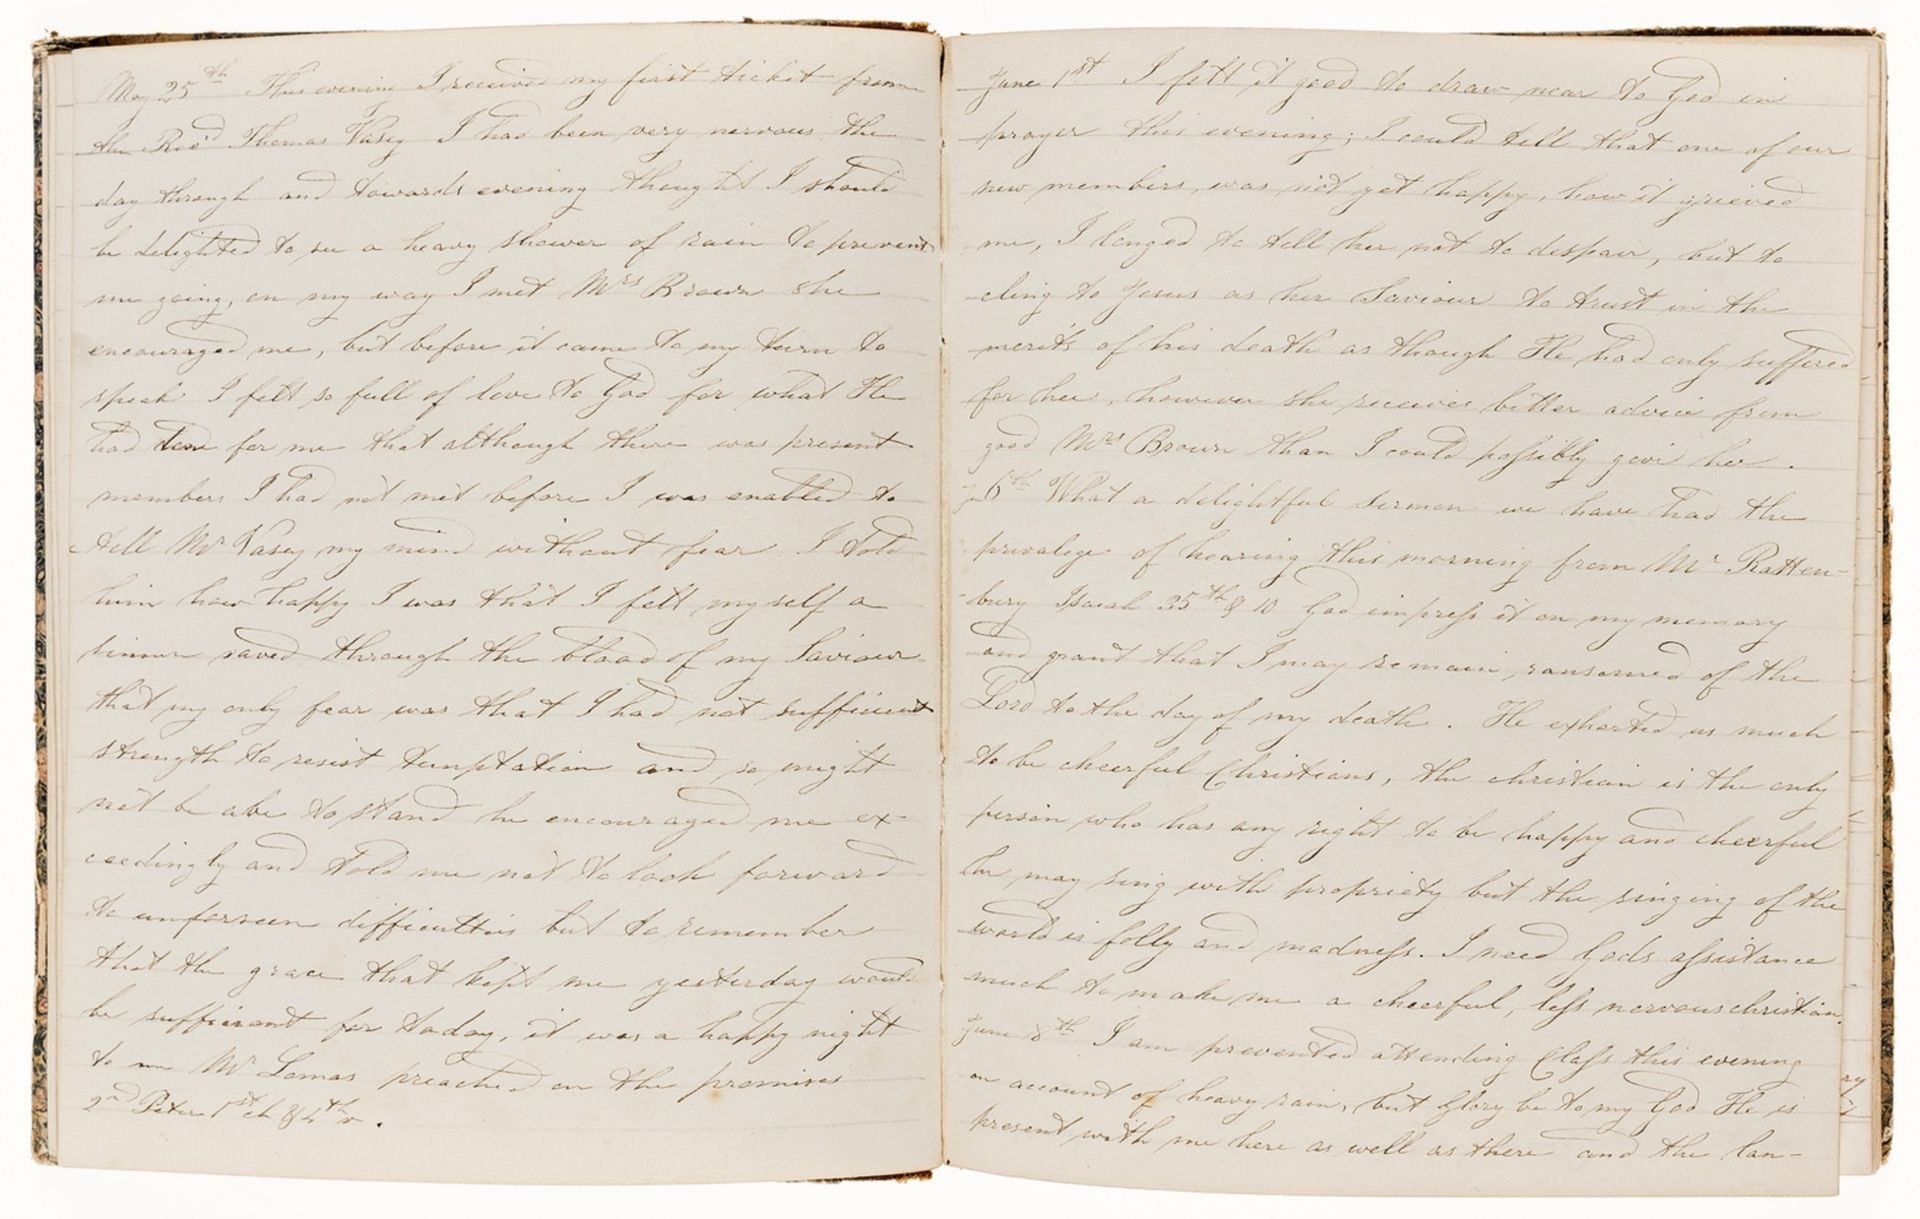 May 25th This evening I received my first ticket from
the Rev'd Thomas Vasey I had been very nervous the
day through and towards evening thought I should
be delighted to see a heavy shower of rain to prevent
me going, on my way I met Mrs Brown she
encouraged me, but before it came to my turn to
speak I felt so full of love to God for what He
had done for me that although there was present
members I had not met before I was enabled to
tell Mr Vasey my mind without fear I told
him how happy I was that I felt myself a
sinner saved through the blood of my Saviour
that my only fear was that I had not sufficient
strength to resist temptation and so might
not be abe to stand he encouraged me ex-
ceedingly and told me not to look forward
to unforseen difficulties but to remember
that the grace that kept me yesterday would
be sufficient for today, it was a happy night
to me Mr Lomas preached on the promises
2nd Peter 1st ch & 4th v.
June 1st I felt it good to draw near to God in
prayer this evening; I could tell that one of our
new members, was not yet happy, how it grieved
me, I longed to tell her not to despair, but to
cling to Jesus as her Saviour to trust in the
merits of his death as though He had only suffered
for her, however she receives better advice from
good Mrs Brown than I could possibly give her.
6th What a delightful sermon we have had the
privalege of hearing this morning from Mr Ratten-
bury Isaiah 35th & 10 God impress it on my memory
and grant that I may remain ransomed of the
Lord to the day of my death. He exhorted us much
to be cheerful Christians, the christian is the only
person who has any right to be happy and cheerful
he may sing with propriety but the singing of the
world is folly and madness. I need Gods assistance
much to make me a cheerful, less nervous christian.
June 8th I am prevented attending Class this evening
on account of heavy rain, but Glory be to my God He is
present with me here as well as there and the lan-